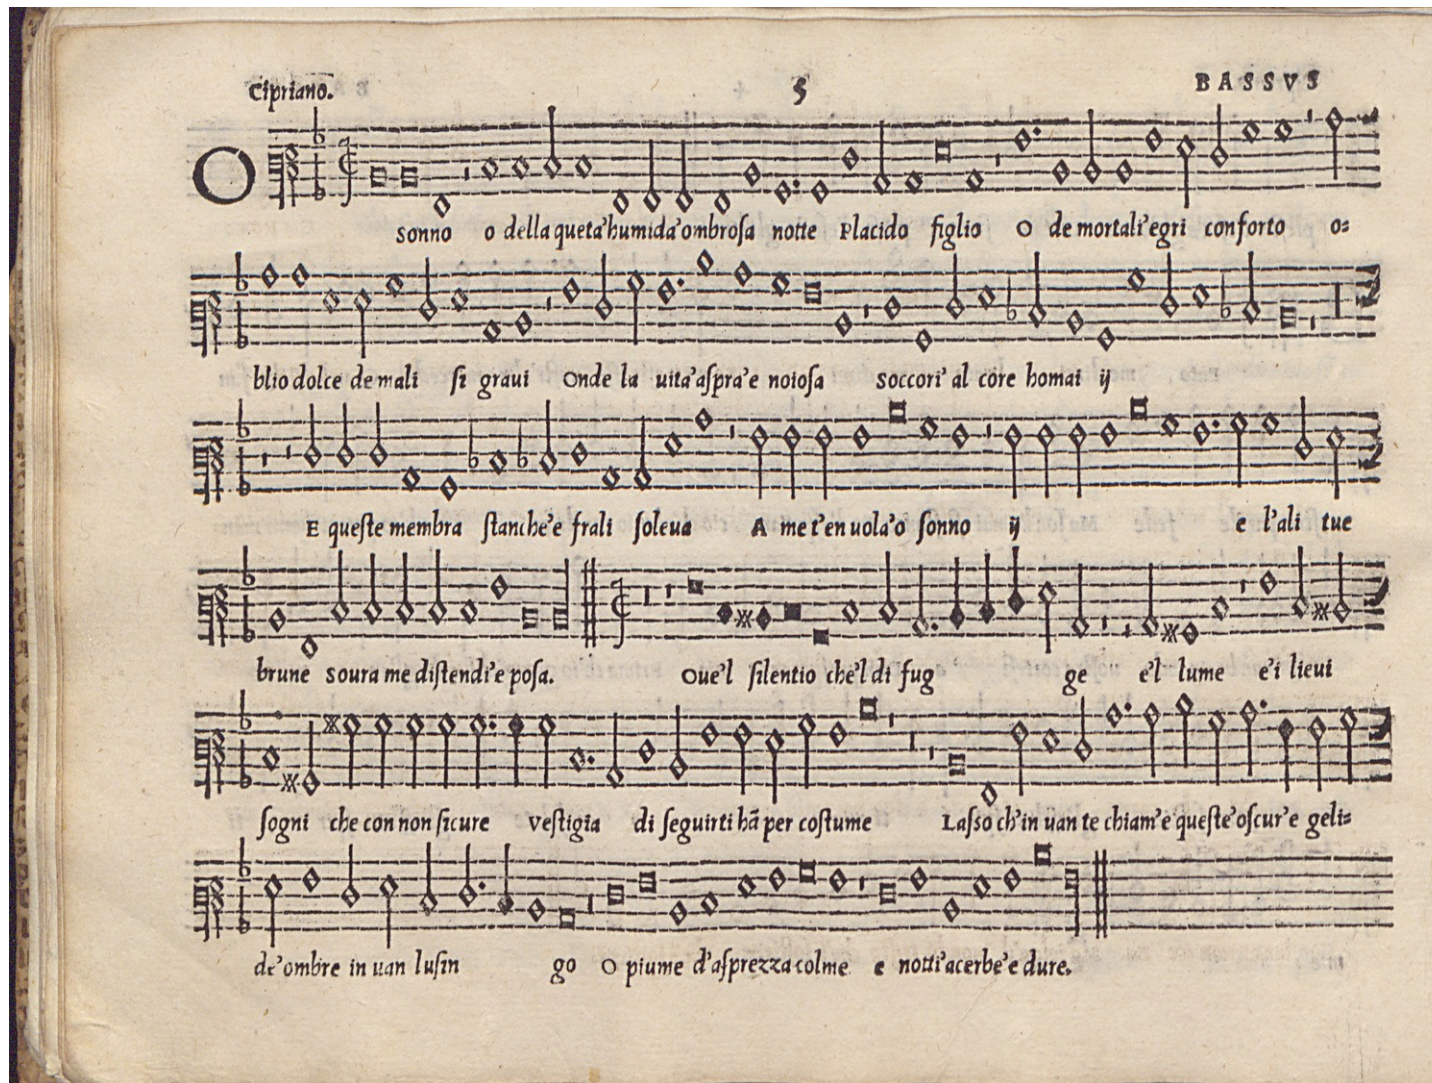 Cipriano. 5 BASSVS
O sonno o della queta'humida'ombrosa notte Placido figlio O de mortali'egri conforto o=
blio dolce de mali si graui Onde la uita'aspra'e noiosa soccori' al core homai ij
E queste membra stanche'e frali soleua A me t'en uola'o sonno ij e l'ali tue
brune soura me distendi'e posa. Oue'l silentio che'l di fug ge e'l lume e'i lieui
sogni che con non sicure vestigia di seguirti hã per costume Lasso ch'in uan te chiam'e queste'oscur'e geli=
de'ombre in uan lusin go O piume d'asprezza colme e notti'acerbe'e dure.